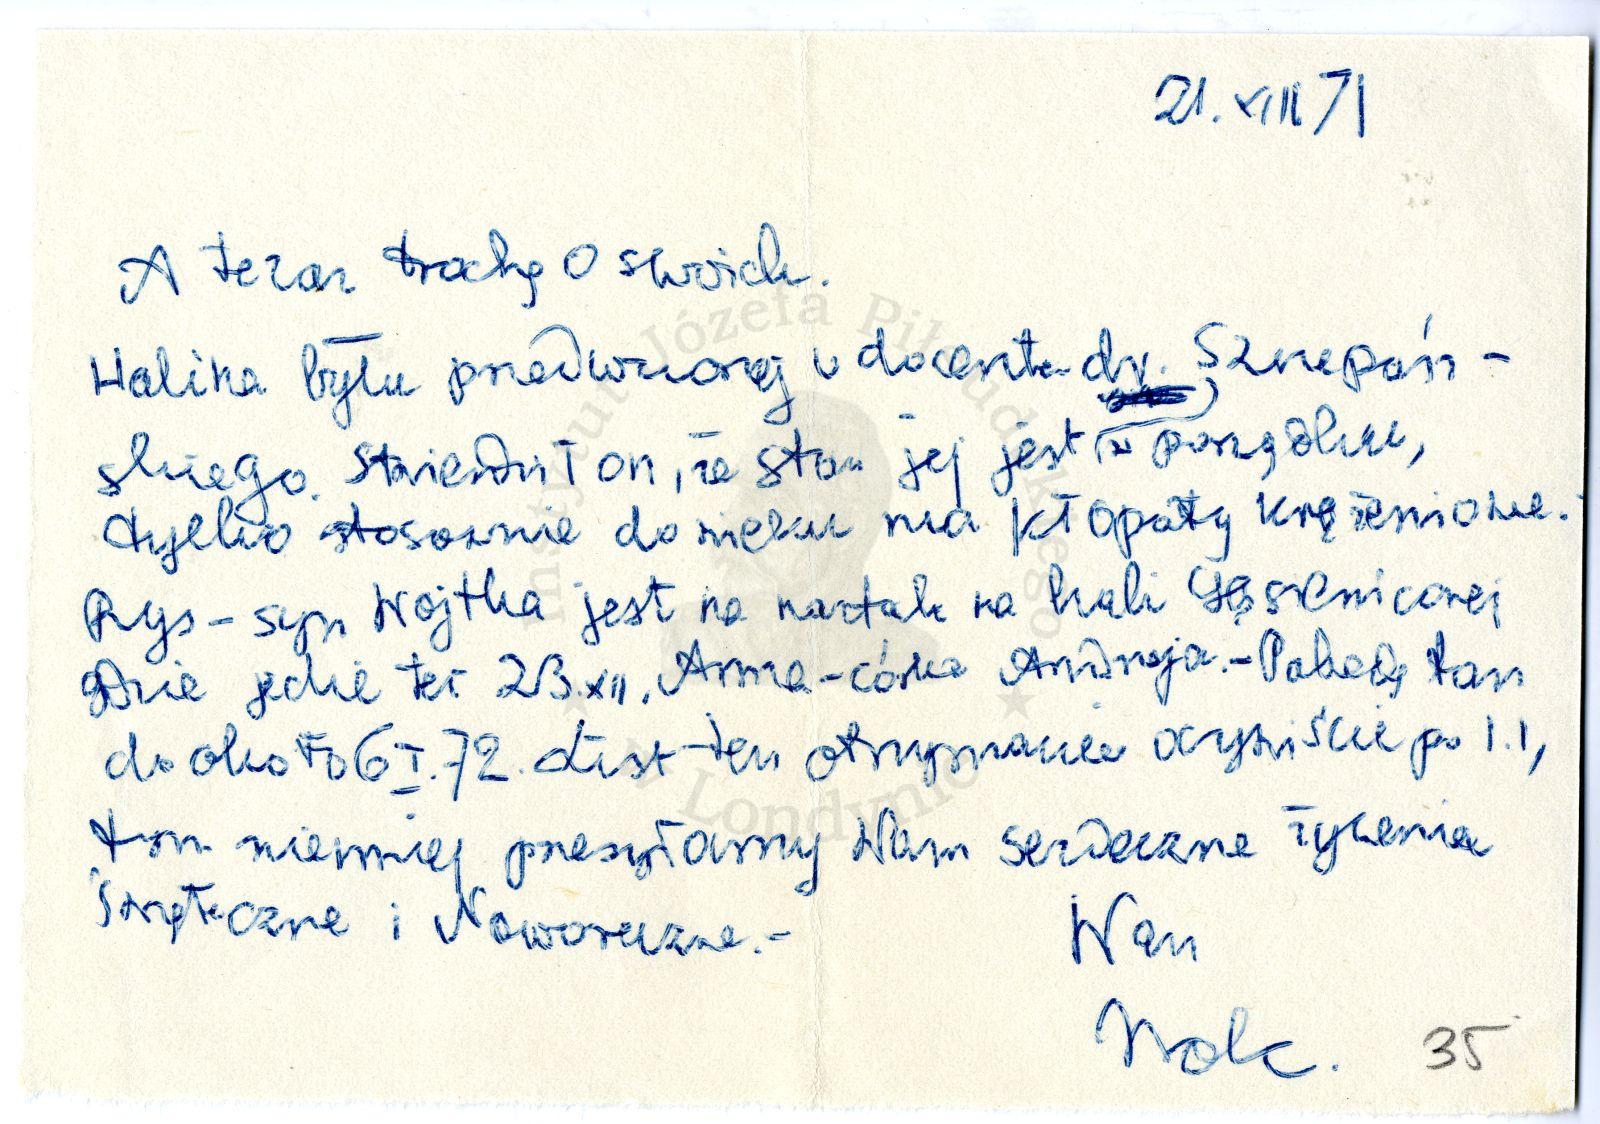 21. XII 71
A teraz trochę o swoich.
Halina była przedwczoraj u docenta dr. Szczepań-
skiego. Stwierdził on, że stan jej jest w porządku,
tylko stosownie do wieku ma kłopoty krążeniowe.
Ryś - syn Wojtka jest na nartach na hali Gąsienicowej
gdzie jedzie też 23.XII. Anna - córka Andrzeja. - Pobędą tam
do około 6 I. 72. List ten otrzymacie oczywiście po 1.1,
tym niemniej przesyłamy Wam serdeczne życzenia
Świąteczne i Noworoczne. -
Wam
35
Instytut Józefa Piłsudskiego
w Londynie